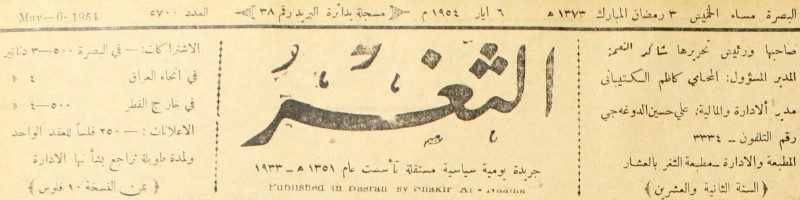 البصرة مساء الخميس ٣ رمضان المبارك ١٣٧٣ هـ ٦ ايار ١٩٥٤ م مسجلة بدائرة البريد رقم ٣٨ العدد ٥٧٠٠ Mav-6-1954
صاحبها ورئيس تحريرها شاكر النعمة
المدير المسؤول: المحامي كاظم الكتيباني
مدير الادارة والمالية: علي حسين الدوغه جي
رقم التلفون ــ ٣٣٣٤
المطبعة والادارة ــ مطبعة الثغر بالعشار
﴿ السنة الثانية والعشرين ﴾
الثغر
جريدة يومية سياسية مستقلة تأسست عام ١٣٥١ هـ ــ ١٩٣٣
Published in Basrah By Shakir Al-Naama
الاشتراكات: ــ في البصرة ٥٠٠ــ٣ دنانير
في انحاء العراق ٤ »
في خارج القطر ٥٠٠ــ٤ »
الاعلانات: ــ ٢٥٠ فلساً للعقد الواحد
ولمدة طويلة تراجع بشأنها الادارة
﴿ ثمن النسخة ١٠ فلوس ﴾